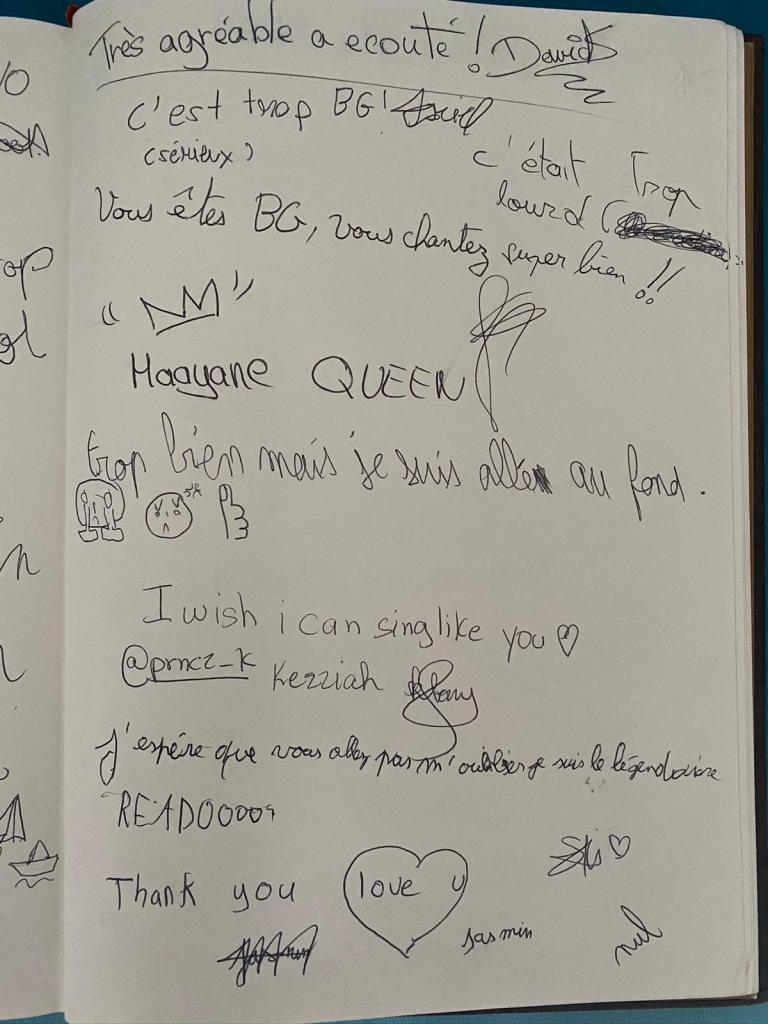 Très agréable a ecouté ! David
c'est trop BG !
(sérieux)
c'était Trop
lourd (
Vous êtes BG, vous chantez super bien !!
" "
Haayane QUEEN
trop bien mais je suis allé au fond.
I wish i can sing like you ♡
@prncz_k Kezziah
j'espére que vous allez pas m'oublier je suis le légendaire
READOOOO
Thank you
love u
Jasmin
nul